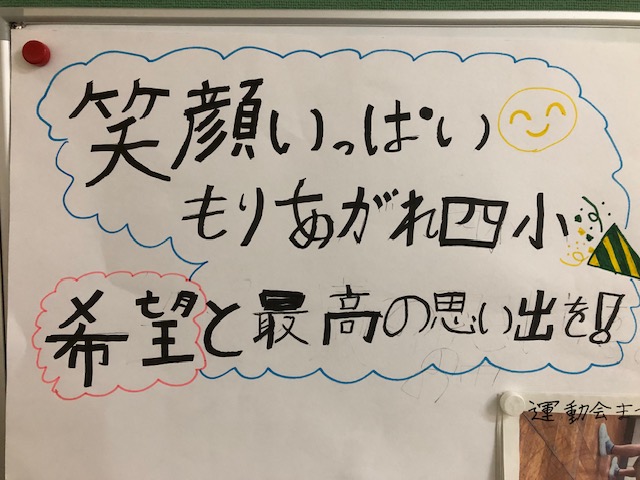 笑顔いっぱい
もりあがれ四小
希望と最高の思い出を!
運動会まで